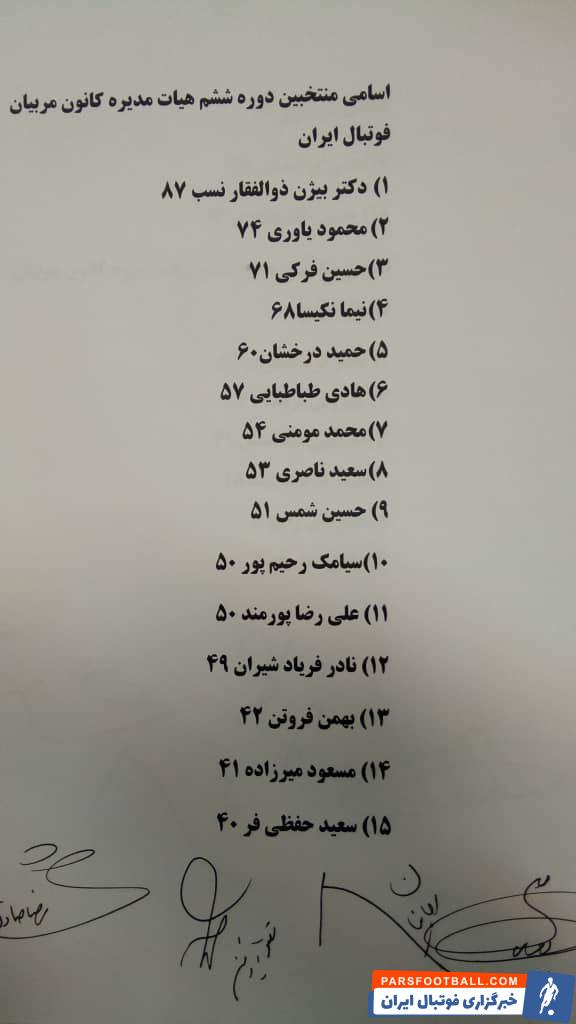 اسامی منتخبین دوره ششم هیات مدیره کانون مربیان
فوتبال ایران
۱) دکتر بیژن ذوالفقار نسب ۸۷
۲) محمود یاوری ۷۴
۳)حسین فرکی ۷۱
۴)نیما نکیسا۶۸
۵)حمید درخشان۶۰
۶)هادی طباطبایی ۵۷
۷)محمد مومنی ۵۴
۸)سعید ناصری ۵۳
۹) حسین شمس ۵۱
۱۰)سیامک رحیم پور ۵۰
۱۱) علی رضا پورمند ۵۰
۱۲) نادر فریاد شیران ۴۹
۱۳) بهمن فروتن ۴۲
۱۴) مسعود میرزاده ۴۱
۱۵) سعید حفظی فر ۴۰
PARSFOOTBALL.COM
خبرگزاری فوتبال ایران